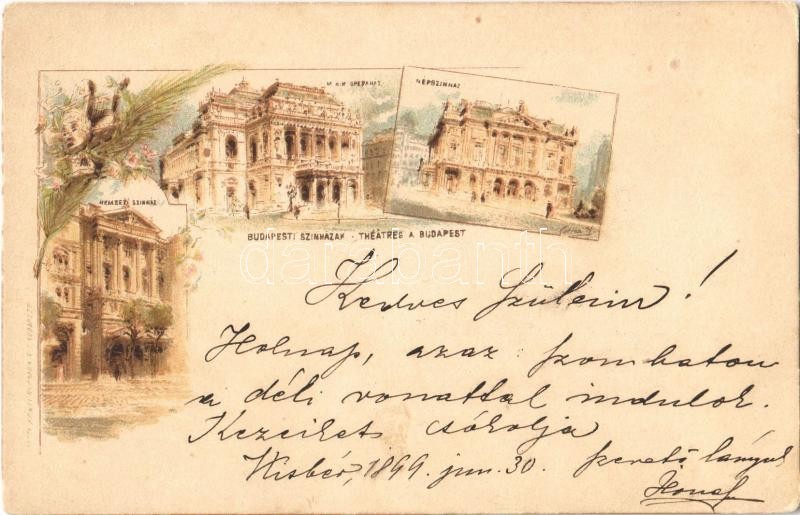 M. KIR. OPERAHÁZ
NÉPSZINHÁZ
NEMZETI SZINHÁZ
BUDAPESTI SZINHÁZAK - THÉÂTRES A BUDAPEST
darabanth
Kedves Szüleim!
Holnap, azaz szombaton
a déli vonattal indulok.
Kezeiket csókolja
Kisbér, 1899. jun. 30. szerető lányuk
Ilona